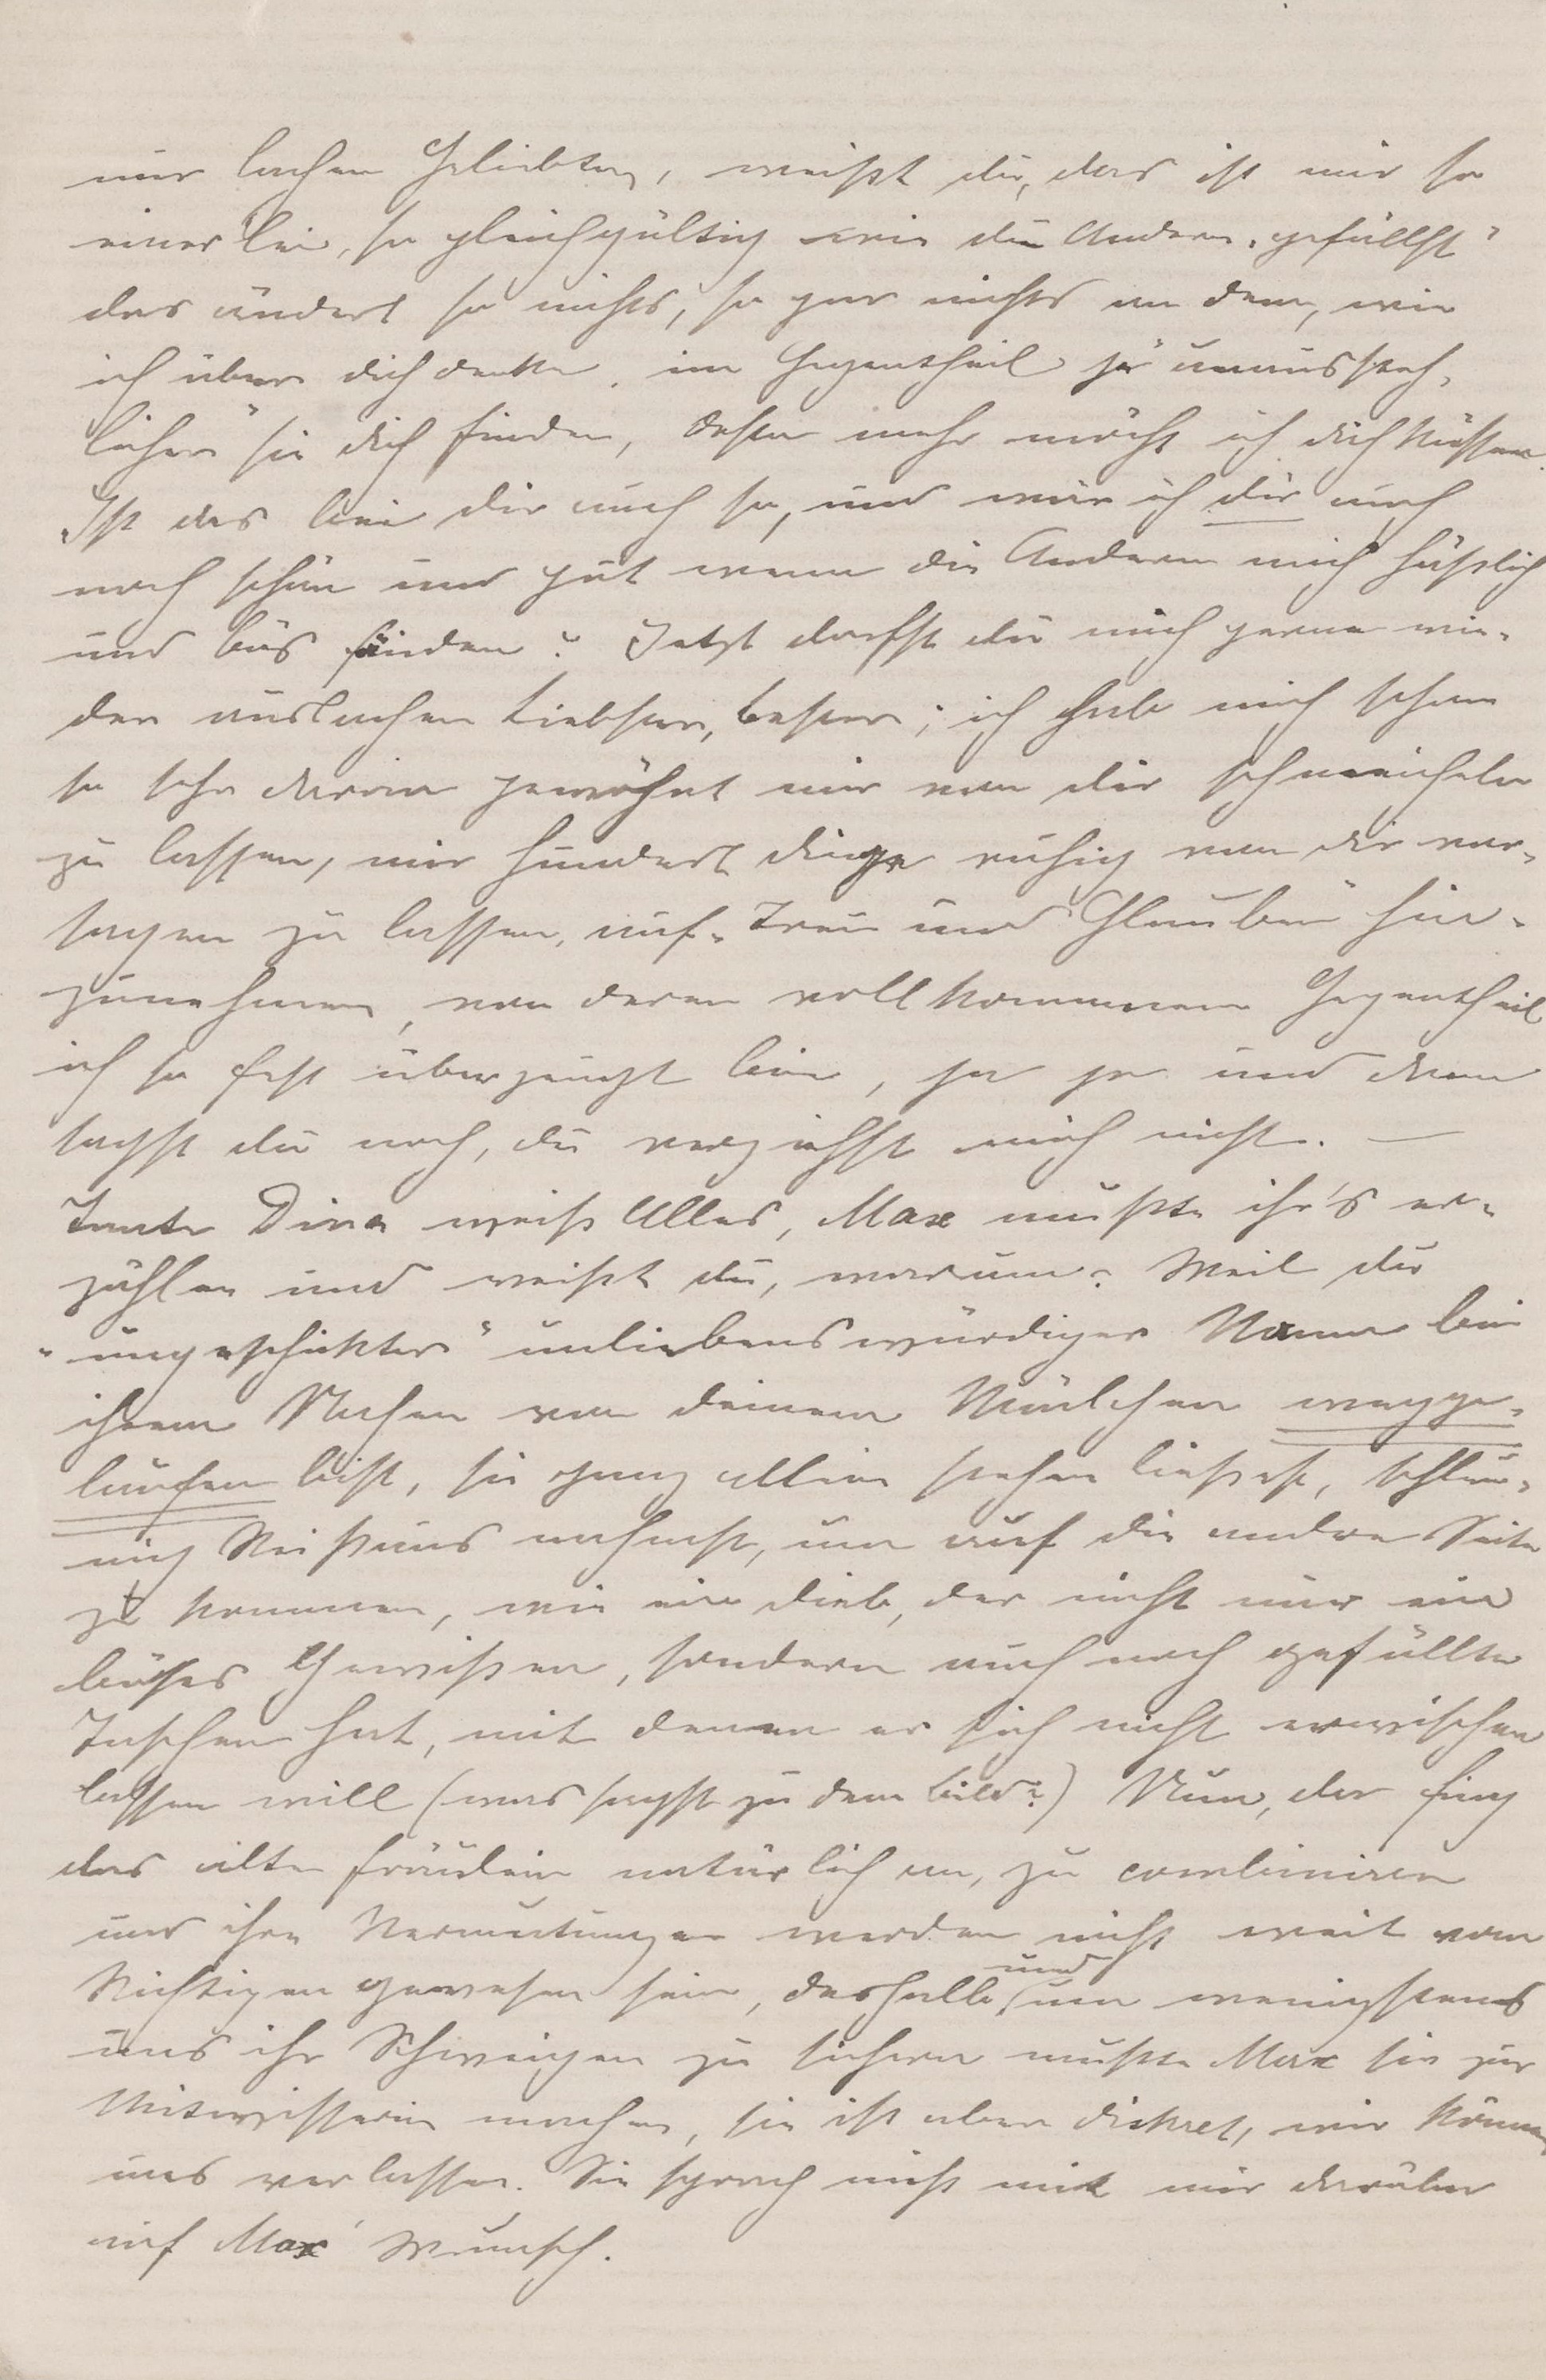 nur lachen Geliebter, weißt du, das ist mir so
einerlei, so gleichgültig wie du Andern "gefällst"
das ändert so nichts, so gar nichts an dem, wie
ich über dich denke, im Gegentheil je "unaussteh-
licher" sie dich finden, desto mehr möcht ich dich küssen.
Ist das bei dir auch so, und wär ich dir auch
noch schön und gut wenn die Anderen mich häßlich
und bös fänden? Jetzt darfst du mich gerne wie-
der auslachen Liebster, bester; ich hab mich schon
so sehr daran gewöhnt mir von dir schmeicheln
zu lassen, mir hundert dinge ruhig von dir vor-
sagen zu lassen, auf "Treu und Glauben" hin-
zunehmen, von deren vollkommenem Gegentheil
ich so fest überzeugt bin, ja ja und dann
sagst du noch, du verziehst mich nicht. —
Tante Dina weiß Alles, Max mußte ihr's er-
zählen und weißt du, warum? Weil du
"ungeschickter" unliebenswürdiger Mann bei
ihrem Nahen von deinem Bäulchen wegge-
laufen bist, sie ganz allein stehen ließest, schleu-
nig Reißaus nahmst, um auf die andre Seite
zu kommen, wie ein dieb, der nicht nur ein
böses Gewissen, sondern auch noch gefüllte
Taschen hat, mit denen er sich nicht erwischen
lassen will (was sagst zu dem bild?) Nun, da fing
das alte Fräulein natürlich an, zu combiniren
und ihre Vermutungen werden nicht weit vom
Richtigen gewesen sein, deshalb und um wenigstens
uns ihr Schweigen zu sichern mußte Max sie zur
Mitwisserin machen, sie ist aber diskret, wir können
uns verlassen. Sie sprach nicht mit mir darüber
auf Max' Wunsch.